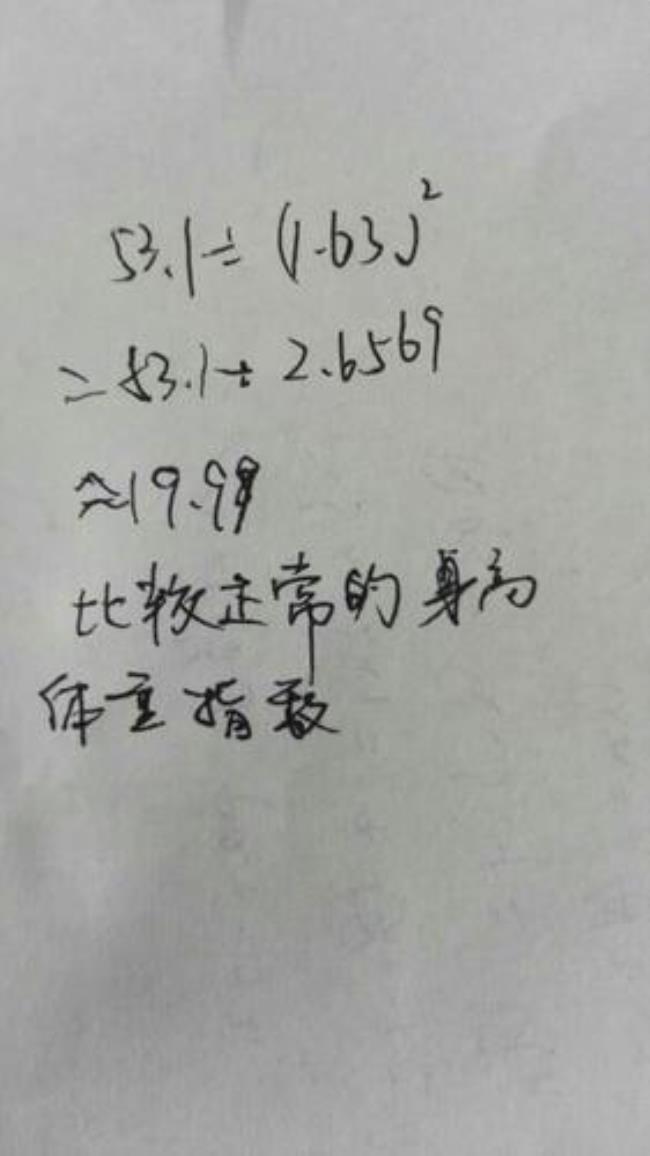 53.1÷(1.63)²
=53.1÷2.6569
≈19.99
比较正常的身高
体重指数